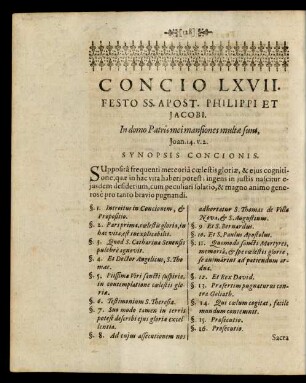 CONCIO LXVII.
FESTO SS. APOST. PHILIPPI ET
JACOBI.
In domo Patris mei mansiones multæ sunt,
Joan. 14. v. 2.
SYNOPSIS CONCIONIS.
Suppositâ frequenti memoriâ cælestis gloriæ, & ejus cogniti-
one, quæ in hac vita haberi potest: ingens in justis nascitur e-
jusdem desiderium, cum peculiari solatio, & magno animo gene-
rosè pro tanto bravio pugnandi.
§. 1. Introitus in Concionem, &
Propositio.
§. 2. Pars prima, cælestis gloria, in
hac vita, est inexplicabilis.
§. 3. Quod S. Catharina Senensis
pulchrè agnovit.
§. 4. Et Doctor Angelicus, S. Tho-
mas.
§. 5. Piissima Viri sancti suspiria,
in contemplatione cælestis glo-
riæ.
§. 6. Testimonium S. Theresæ.
§. 7. Suo modo tamen in terris
potest describi ejus gloriæ excel-
lentia.
§. 8. Ad cujus assecutionem nos
adhortatur S. Thomas de Villa
Nova, & S. Augustinus.
§. 9. Et S. Bernardus.
§. 10. Et S. Paulus Apostolus.
§. 11. Quomodo sancti Martyres,
memoriâ, & spe cælestis gloriæ,
se animârint ad patiendum ar-
dua.
§. 12. Et Rex David.
§. 13. Præsertim pugnaturus con-
tra Goliath.
§. 14. Qui cælum cogitat, facilè
mundum contemnit.
§. 15. Prosecutio.
§. 16. Prosecutio.
Sacra